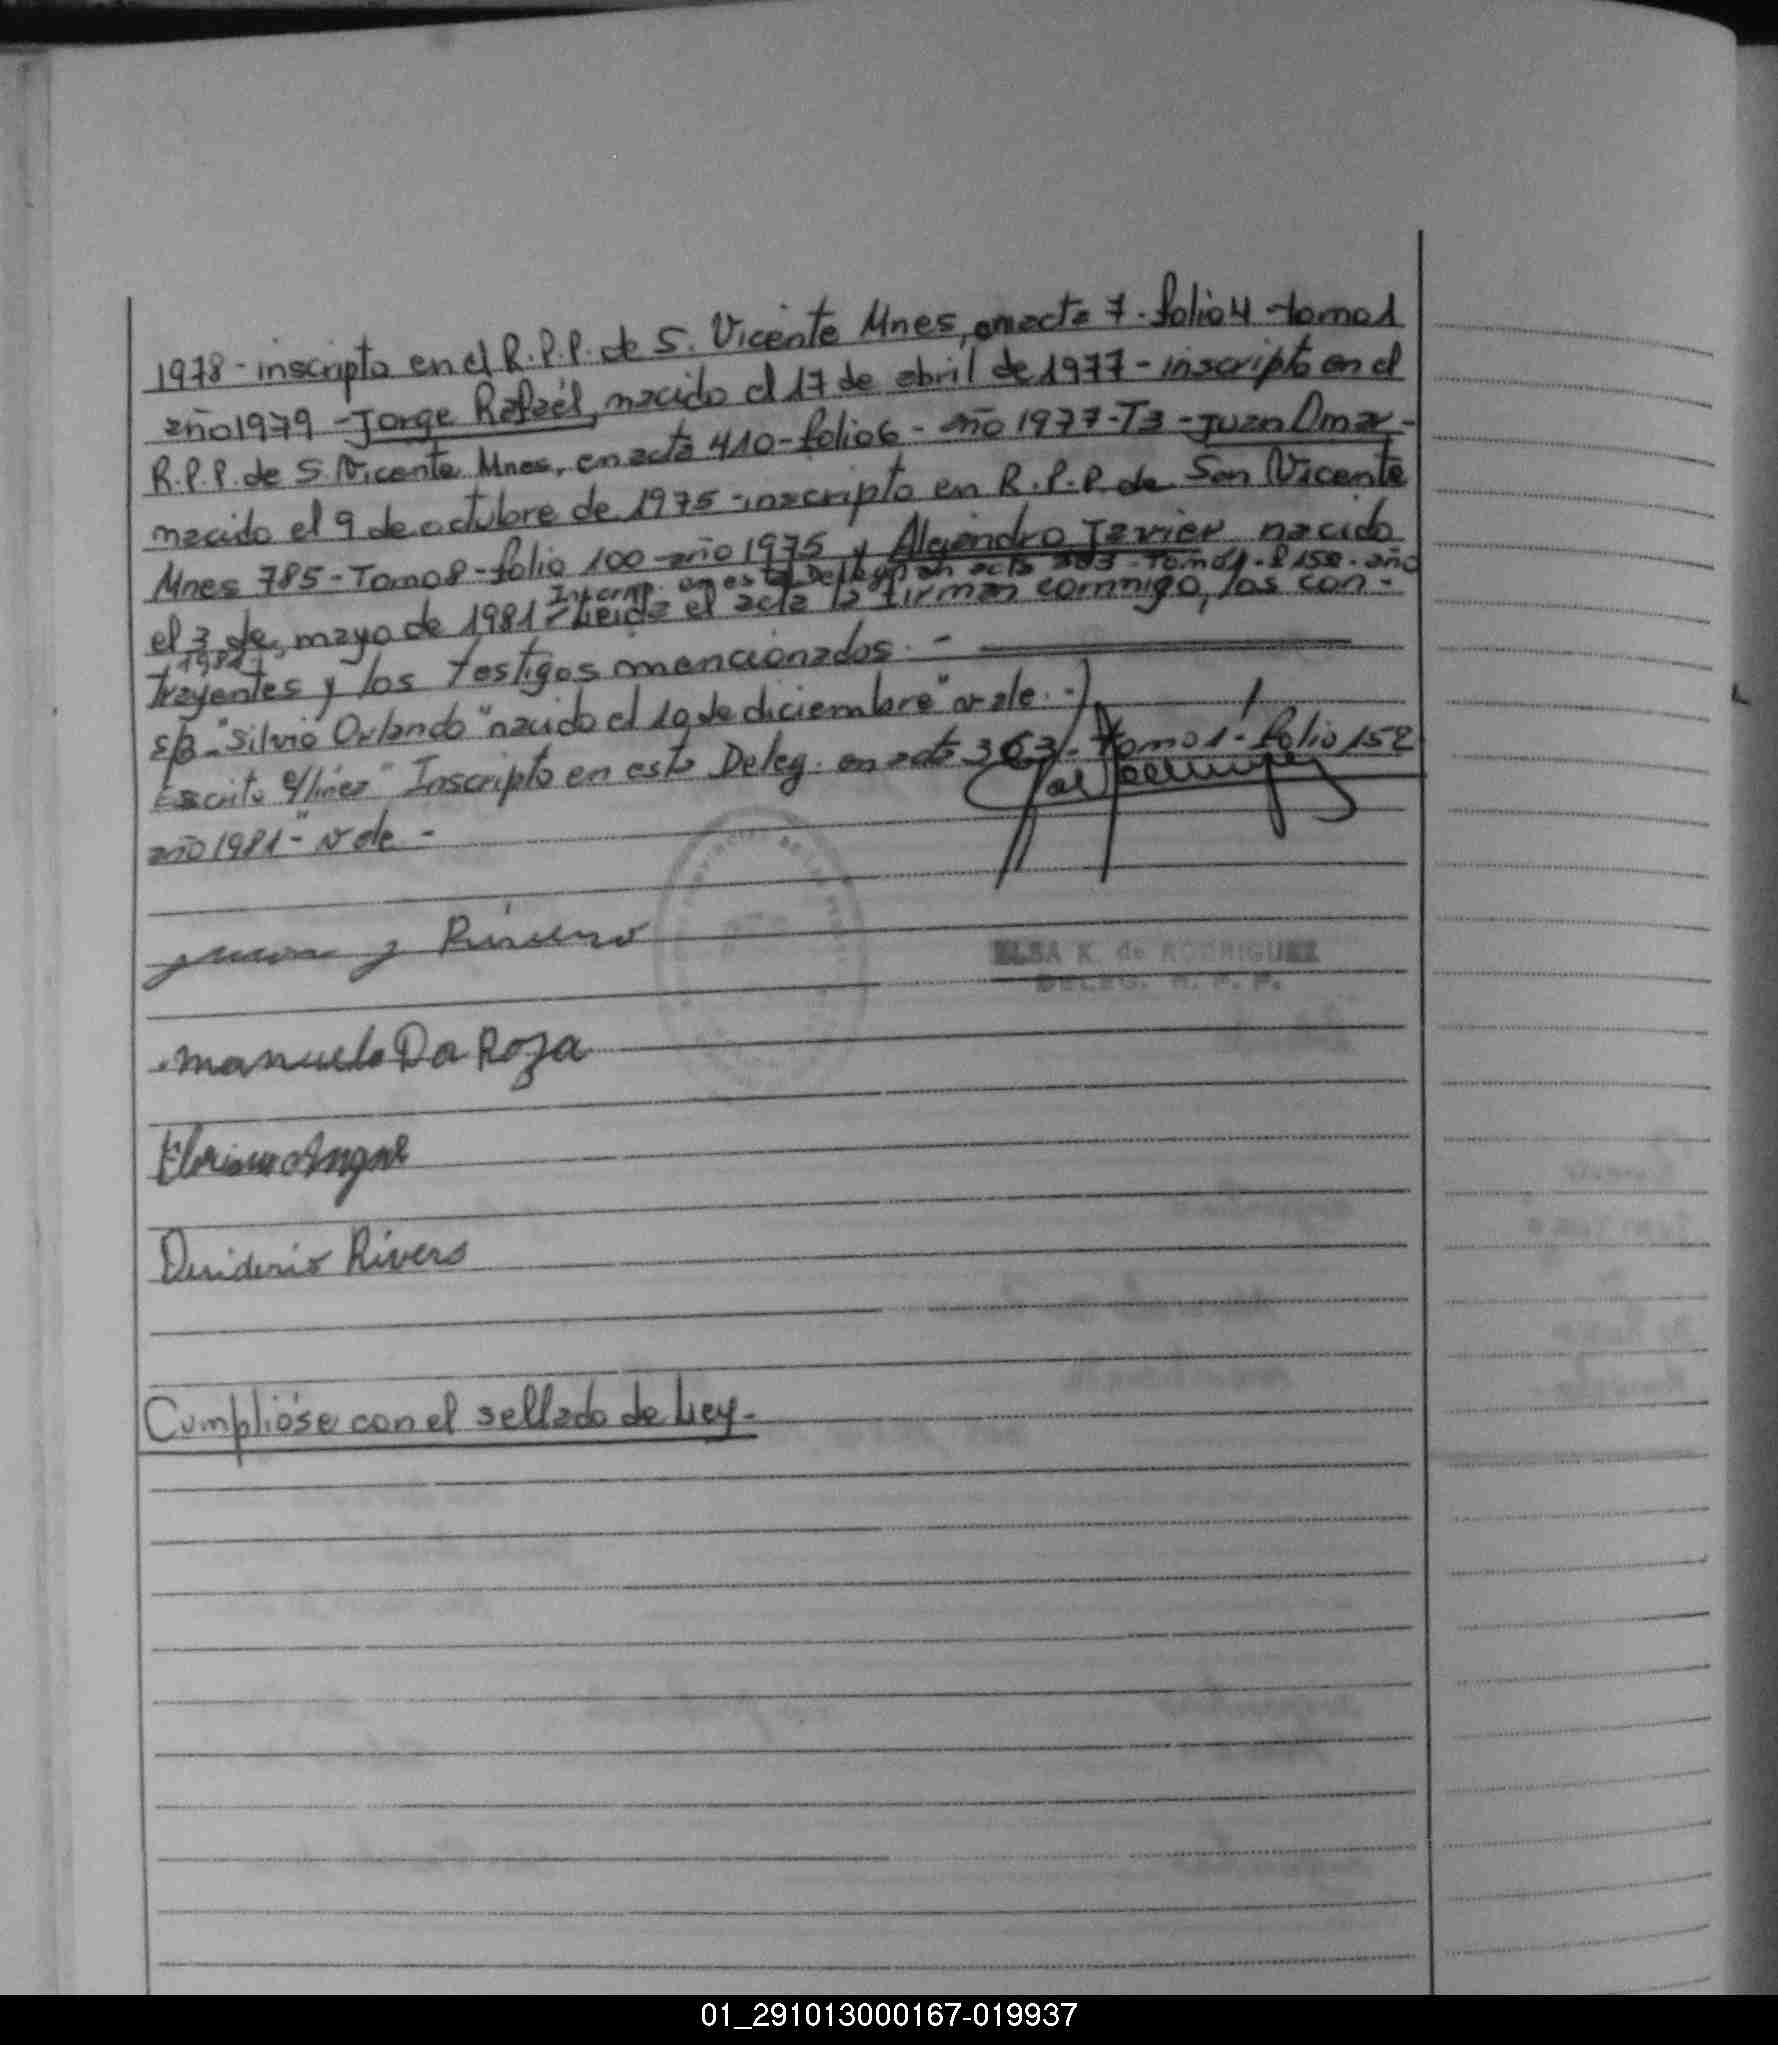 1978 - inscripto en el R.P.P. de S. Vicente Mnes, en acta 7 - folio 4 - tomo 1
año 1979 - Jorge Rafaél, nacido el 17 de abril de 1977 - inscripto en el
R.P.P. de S. Vicente Mnes, en acta 410 - folio 6 - año 1977 - T3 - Juan Omar -
nacido el 9 de octubre de 1975 - inscripto en R.P.P. de San Vicente
Mnes 785 - Tomo 8 - folio 100 - año 1975 y Alejandro Javier nacido
Inscrip. en esta Deleg. en acta 363 - Tomo 1 - f 152 - año
el 3 de mayo de 1981 - Leida el acta la firman conmigo, los con -
1981
trayentes y los testigos mencionados. -
S/B - "Silvio Orlando" nacido el 19 de diciembre" vale. -
Escrito e/linea "Inscripto en esta Deleg. en acta 363 - Tomo 1 - folio 152
año 1981 -" vale -
ELSA K. de RODRIGUEZ
DELEG. R. P. P.
Manuela Da Roza
Desiderio Rivero
Cumplióse con el sellado de Ley -
01_291013000167-019937